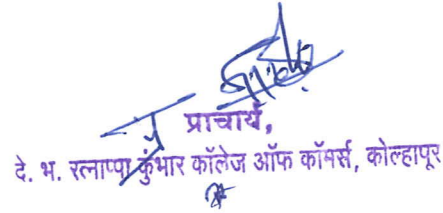 प्राचार्य,
दे. भ. रत्नाप्पा कुंभार कॉलेज ऑफ कॉमर्स, कोल्हापूर